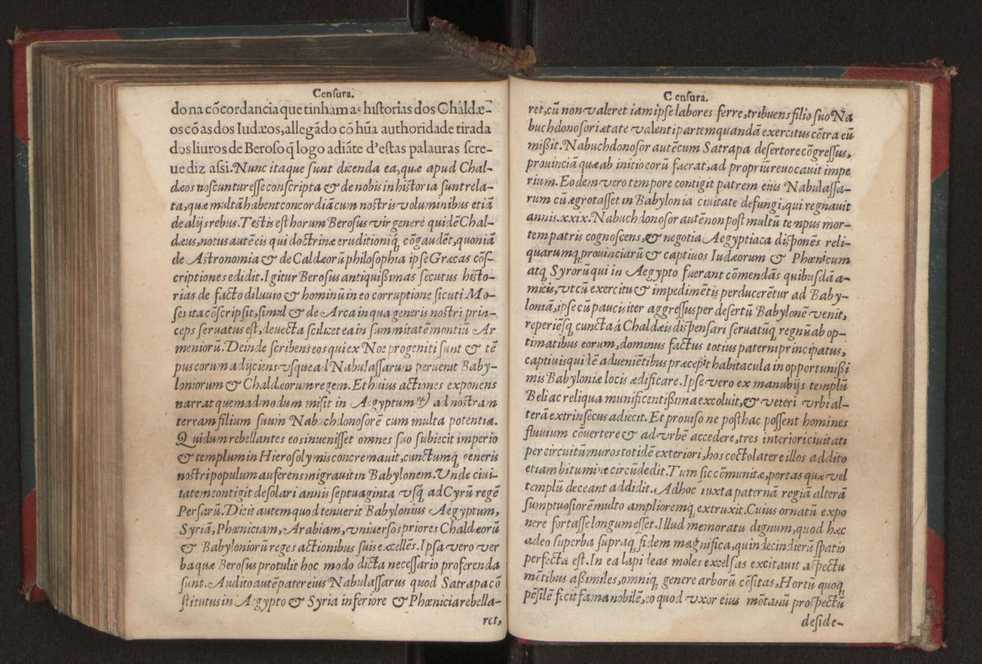 Censura.
do na cõcordancia que tinham as historias dos Chaldæ-
os cõ as dos Iudæos, allegãdo cõ hũa authoridade tirada
dos liuros de Beroso q̃ logo adiãte d'estas palauras scre-
ue diz assi. Nunc itaque sunt dicenda ea, quæ apud Chal-
dæos noscuntur esse conscripta & de nobis in historia sunt rela-
ta, quæ multã habent concordiã cum nostris voluminibus etiã
de alijs rebus. Testis est horum Berosus vir genere quidẽ Chal-
dæus, notus autẽ eis qui doctrinæ eruditioniq̃ cõgaudẽt, quoniã
de Astronomia & de Caldæorũ philosophia ipse Græcas cõs-
criptiones edidit. Igitur Berosus antiquissimas secutus histo-
rias de facto diluuio & hominũ in eo corruptione sicuti Mo-
ses ita cõscripsit, simul & de Arca in qua generis nostri prin-
ceps seruatus est, deuecta scilicet ea in summitatẽ montiũ Ar
meniorũ. Deinde scribens eos qui ex Noe progeniti sunt & tẽ
pus eorum adijciens vsque ad Nabulassarum peruenit Baby-
loniorum & Chaldæorum regem. Et huius actiones exponens
narrat quemadmodum misit in Aegyptum & ad nostram
terram filium suum Nabuchdonosorẽ cum multa potentia.
Qui dum rebellantes eos inuenisset omnes suo subiecit imperio
& templum in Hierosolymis concremauit, cunctumq̃ generis
nostri populum auferens migrauit in Babylonem. Unde ciui-
tatem contigit desolari annis septuaginta vsq̃ ad Cyrũ regẽ
Persarũ. Dicit autem quod tenuerit Babylonius Aegyptum,
Syriã, Phœniciam, Arabiam, vniuersos priores Chaldeorũ
& Babyloniorũ reges actionibus suis excellẽs. Ipsa vero ver
ba quæ Berosus protulit hoc modo dicta necessario proferenda
sunt. Audito autẽ pater eius Nabulassarus quod Satrapa cõ
stitutus in Aegypto & Syria inferiore & Phœnicia rebella-
ret,
Censura.
ret, cũ non valeret iam ipse labores ferre, tribuens filio suo Na
buchdonosori ætate valenti partem quandã exercitus cõtra eũ
misit. Nabuchdonosor autẽ cum Satrapa desertore cõgressus,
prouinciã quæ ab initio eorũ fuerat, ad propriũ reuocauit impe
rium. Eodem vero tempore contigit patrem eius Nabulassa-
rum cũ ægrotasset in Babylonia ciuitate defungi, qui regnauit
annis. xxix. Nabuchdonosor autẽ non post multũ tempus mor-
tem patris cognoscens, & negotia Aegyptiaca dispõnẽs reli-
quarumq̃ prouinciarũ & captiuos Iudæorum & Phœnicum
atq̃ Syrorũ qui in Aegypto fuerant cõmendãs quibusdã a-
micis, vt cũ exercitu & impedimẽtis perducerẽtur ad Baby-
loniã, ipse cũ paucis iter aggressus per desertũ Babylonẽ venit,
reperiẽsq̃ cuncta à Chaldæis dispensari seruatũq̃ regnũ ab op-
timatibus eorum, dominus factus totius paterni principatus,
captiuis quidẽ adueniẽtibus præcepit habitacula in opportunissi
mis Babyloniæ locis ædificare. Ipse vero ex manubijs templũ
Beli ac reliqua munificentissima excoluit, & veteri vrbi al-
terã extrinsecus adiecit. Et prouiso ne posthac possent homines
fluuium cõuertere & ad vrbẽ accedere, tres interiori ciuitati
per circuitũ muros totidẽ exteriori, hos cocto latere illos addito
etiam bitumine circũdedit. Tum sic cõmunita, portas quæ vel
templũ deceant addidit. Adhoc iuxta paternã regiã alterã
sumptuosiorẽ multo amplioremq̃ extruxit. Cuius ornatũ expo
nere fortasse longum esset. Illud memoratu dignum, quod hæc
adeo superba supraq̃ fidem magnifica, quindecim dierũ spatio
perfecta est. In ea lapideas moles excelsas excitauit aspectu
mõtibus assimiles, omniq̃ genere arborũ cõsitas, Hortũ quoq̃
pẽsilẽ fecit fama nobilẽ, eo quod vxor eius mõtanũ prospectũ
deside-